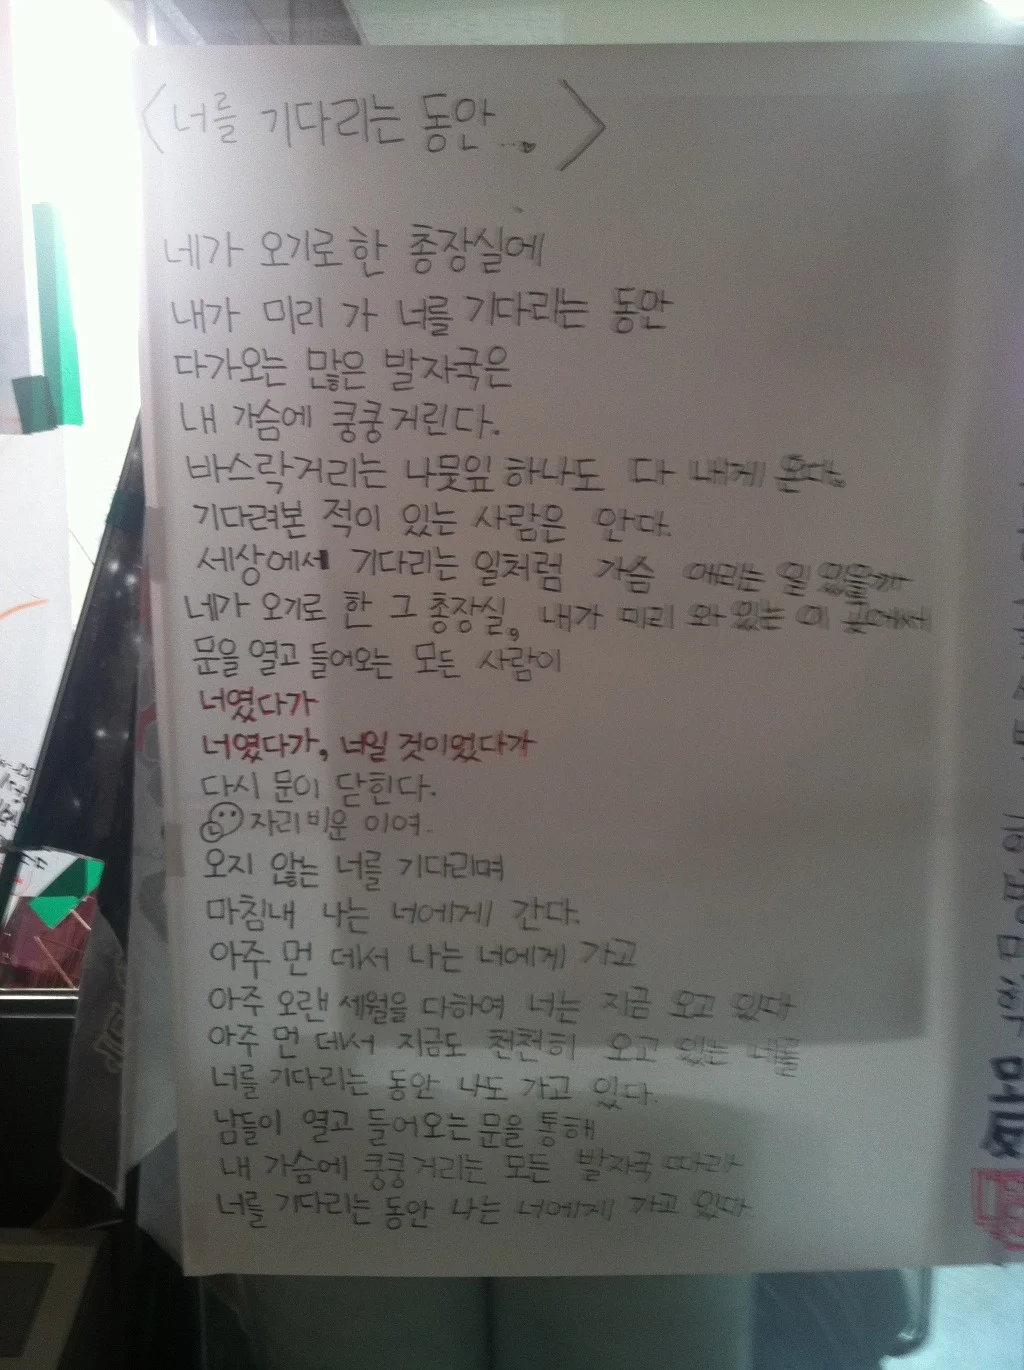 <너를 기다리는 동안...>
네가 오기로 한 총장실에
내가 미리 가 너를 기다리는 동안
다가오는 많은 발자국은
내 가슴에 쿵쿵거린다.
바스락거리는 나뭇잎 하나도 다 내게 온다.
기다려본 적이 있는 사람은 안다.
세상에서 기다리는 일처럼 가슴 애리는 일 있을까
네가 오기로 한 그 총장실, 내가 미리 와 있는 이 곳에서
문을 열고 들어오는 모든 사람이
너였다가
너였다가, 너일 것이었다가
다시 문이 닫힌다.
자리비운 이여.
오지 않는 너를 기다리며
마침내 나는 너에게 간다.
아주 먼 데서 나는 너에게 가고
아주 오랜 세월을 다하여 너는 지금 오고 있다
아주 먼 데서 지금도 천천히 오고 있는 너를
너를 기다리는 동안 나도 가고 있다.
남들이 열고 들어오는 문을 통해
내 가슴에 쿵쿵거리는 모든 발자국 따라
너를 기다리는 동안 나는 너에게 가고 있다.